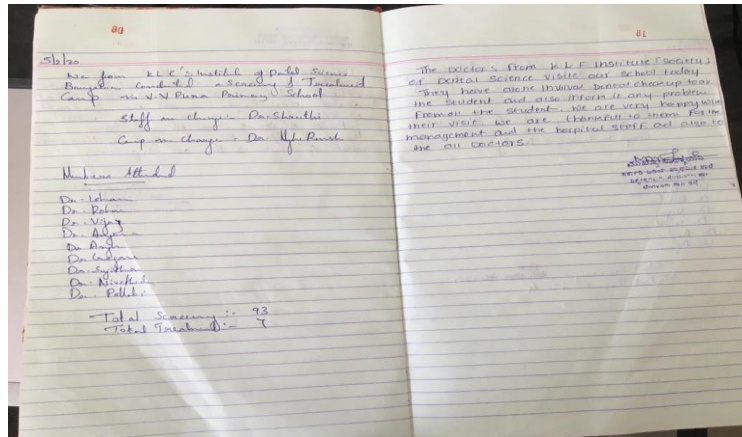 80
5/2/20
We from KLE's Institute of Dental Science
Bangalore Conducted a Screening & Treatment
Camp in V.V Pura Primary School
Staff in charge :- Dr. Shruthi
Camp in charge :- Dr.
Members Attended
Dr. Ishani
Dr. Rohan
Dr. Vijay
Dr. Anjana
Dr.
Dr.
Dr.
Dr. Nivethida
Dr. Pallabi
Total Screening :- 93
Total Treatment :- 7
81
The Doctor's From KLF Institute [Society]
of Dental Science visite our school today
They have done Dental checkup to all
the student and also inform is any problem
From all the student. We are very happy with
their visit. We are thankful to them for the
management and the hospital staff and also to
the all Doctors.